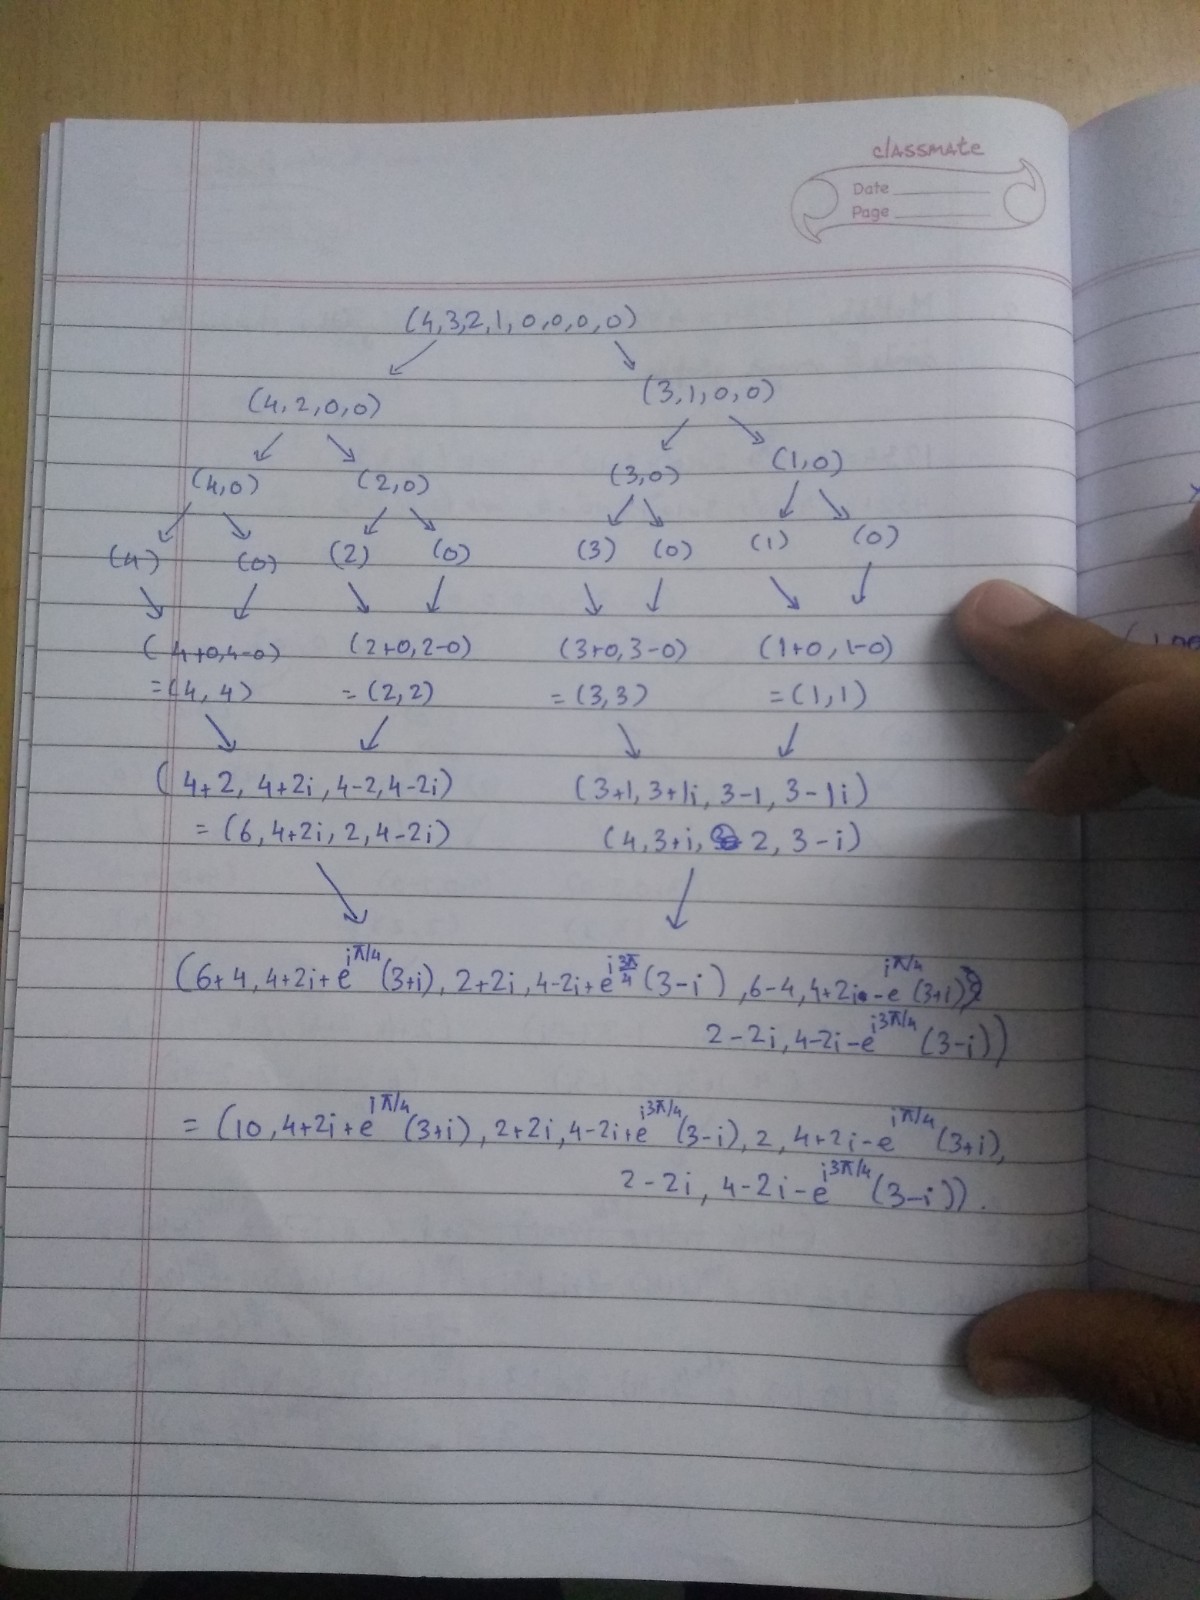 classmate
Date
Page
(4,3,2,1,0,0,0,0)
(4,2,0,0) (3,1,0,0)
(4,0) (2,0) (3,0) (1,0)
(4) (0) (2) (0) (3) (0) (1) (0)
(4+0,4-0) (2+0,2-0) (3+0,3-0) (1+0,1-0)
=(4,4) =(2,2) =(3,3) =(1,1)
(4+2, 4+2i, 4-2, 4-2i) (3+1, 3+1i, 3-1, 3-1i)
= (6, 4+2i, 2, 4-2i) (4, 3+i, 2, 3-i)
(6+4, 4+2i+e^{iπ/4}(3+i), 2+2i, 4-2i+e^{i3π/4}(3-i), 6-4, 4+2i-e^{iπ/4}(3+i),
2-2i, 4-2i-e^{i3π/4}(3-i))
= (10, 4+2i+e^{iπ/4}(3+i), 2+2i, 4-2i+e^{i3π/4}(3-i), 2, 4+2i-e^{iπ/4}(3+i),
2-2i, 4-2i-e^{i3π/4}(3-i)).